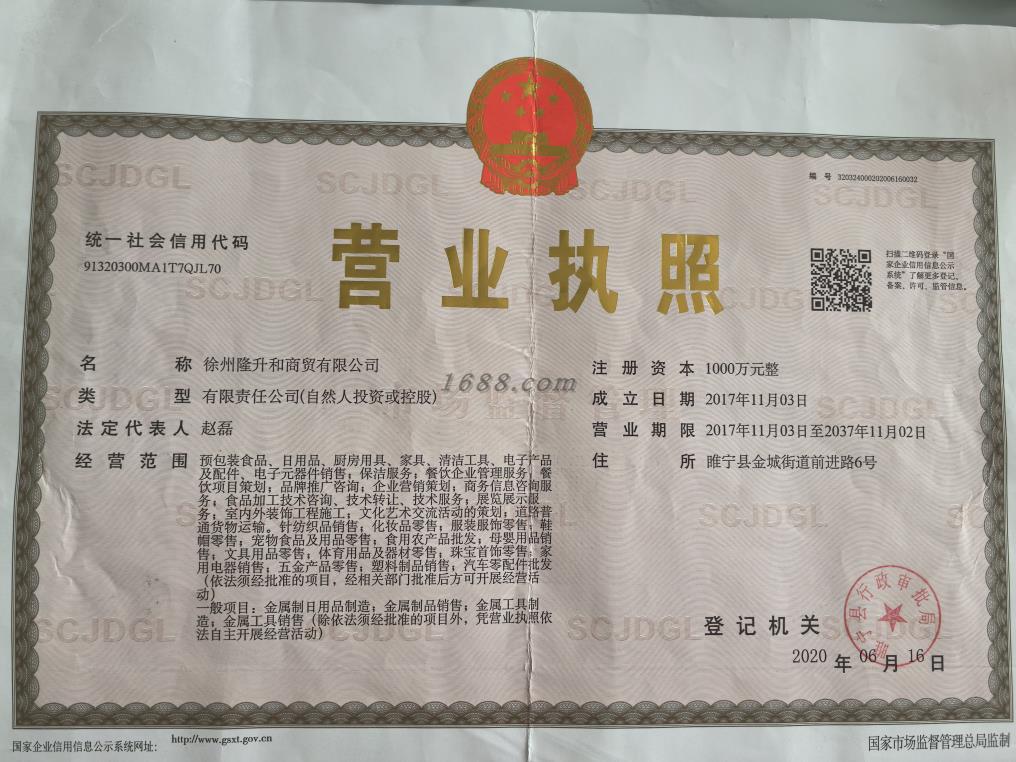 编 号 320324000202006160032
统一社会信用代码
91320300MA1T7QJL70
营业执照
扫描二维码登录“国
家企业信用信息公示
系统”了解更多登记、
备案、许可、监管信息。
名 称 徐州隆升和商贸有限公司
类 型 有限责任公司(自然人投资或控股)
法定代表人 赵磊
经营范围 预包装食品、日用品、厨房用具、家具、清洁工具、电子产品
及配件、电子元器件销售；保洁服务；餐饮企业管理服务；餐
饮项目策划；品牌推广咨询；企业营销策划；商务信息咨询服
务，食品加工技术咨询、技术转让、技术服务；展览展示服
务；室内外装饰工程施工；文化艺术交流活动的策划；道路普
通货物运输。针纺织品销售；化妆品零售；服装服饰零售，鞋
帽零售；宠物食品及用品零售；食用农产品批发；母婴用品销
售；文具用品零售；体育用品及器材零售；珠宝首饰零售；家
用电器销售；五金产品零售；塑料制品销售，汽车零配件批发
（依法须经批准的项目，经相关部门批准后方可开展经营活
动）
一般项目：金属制日用品制造；金属制品销售；金属工具制
造；金属工具销售（除依法须经批准的项目外，凭营业执照依
法自主开展经营活动）
注册资本 1000万元整
成立日期 2017年11月03日
营业期限 2017年11月03日至2037年11月02日
住 所 睢宁县金城街道前进路6号
1688.com
SCJDGL
市场监督管理
登记机关
睢宁县行政审批局
2020 年 06 月 16 日
国家企业信用信息公示系统网址： http://www.gsxt.gov.cn
国家市场监督管理总局监制